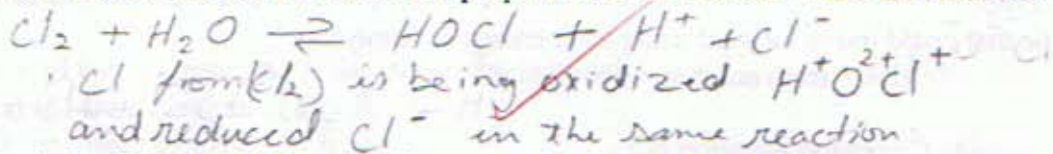 Cl₂ + H₂O ⇌ HOCl + H⁺ + Cl⁻
· Cl from (Cl₂) is being oxidized H⁺O²⁺Cl⁺
and reduced Cl⁻ in the same reaction